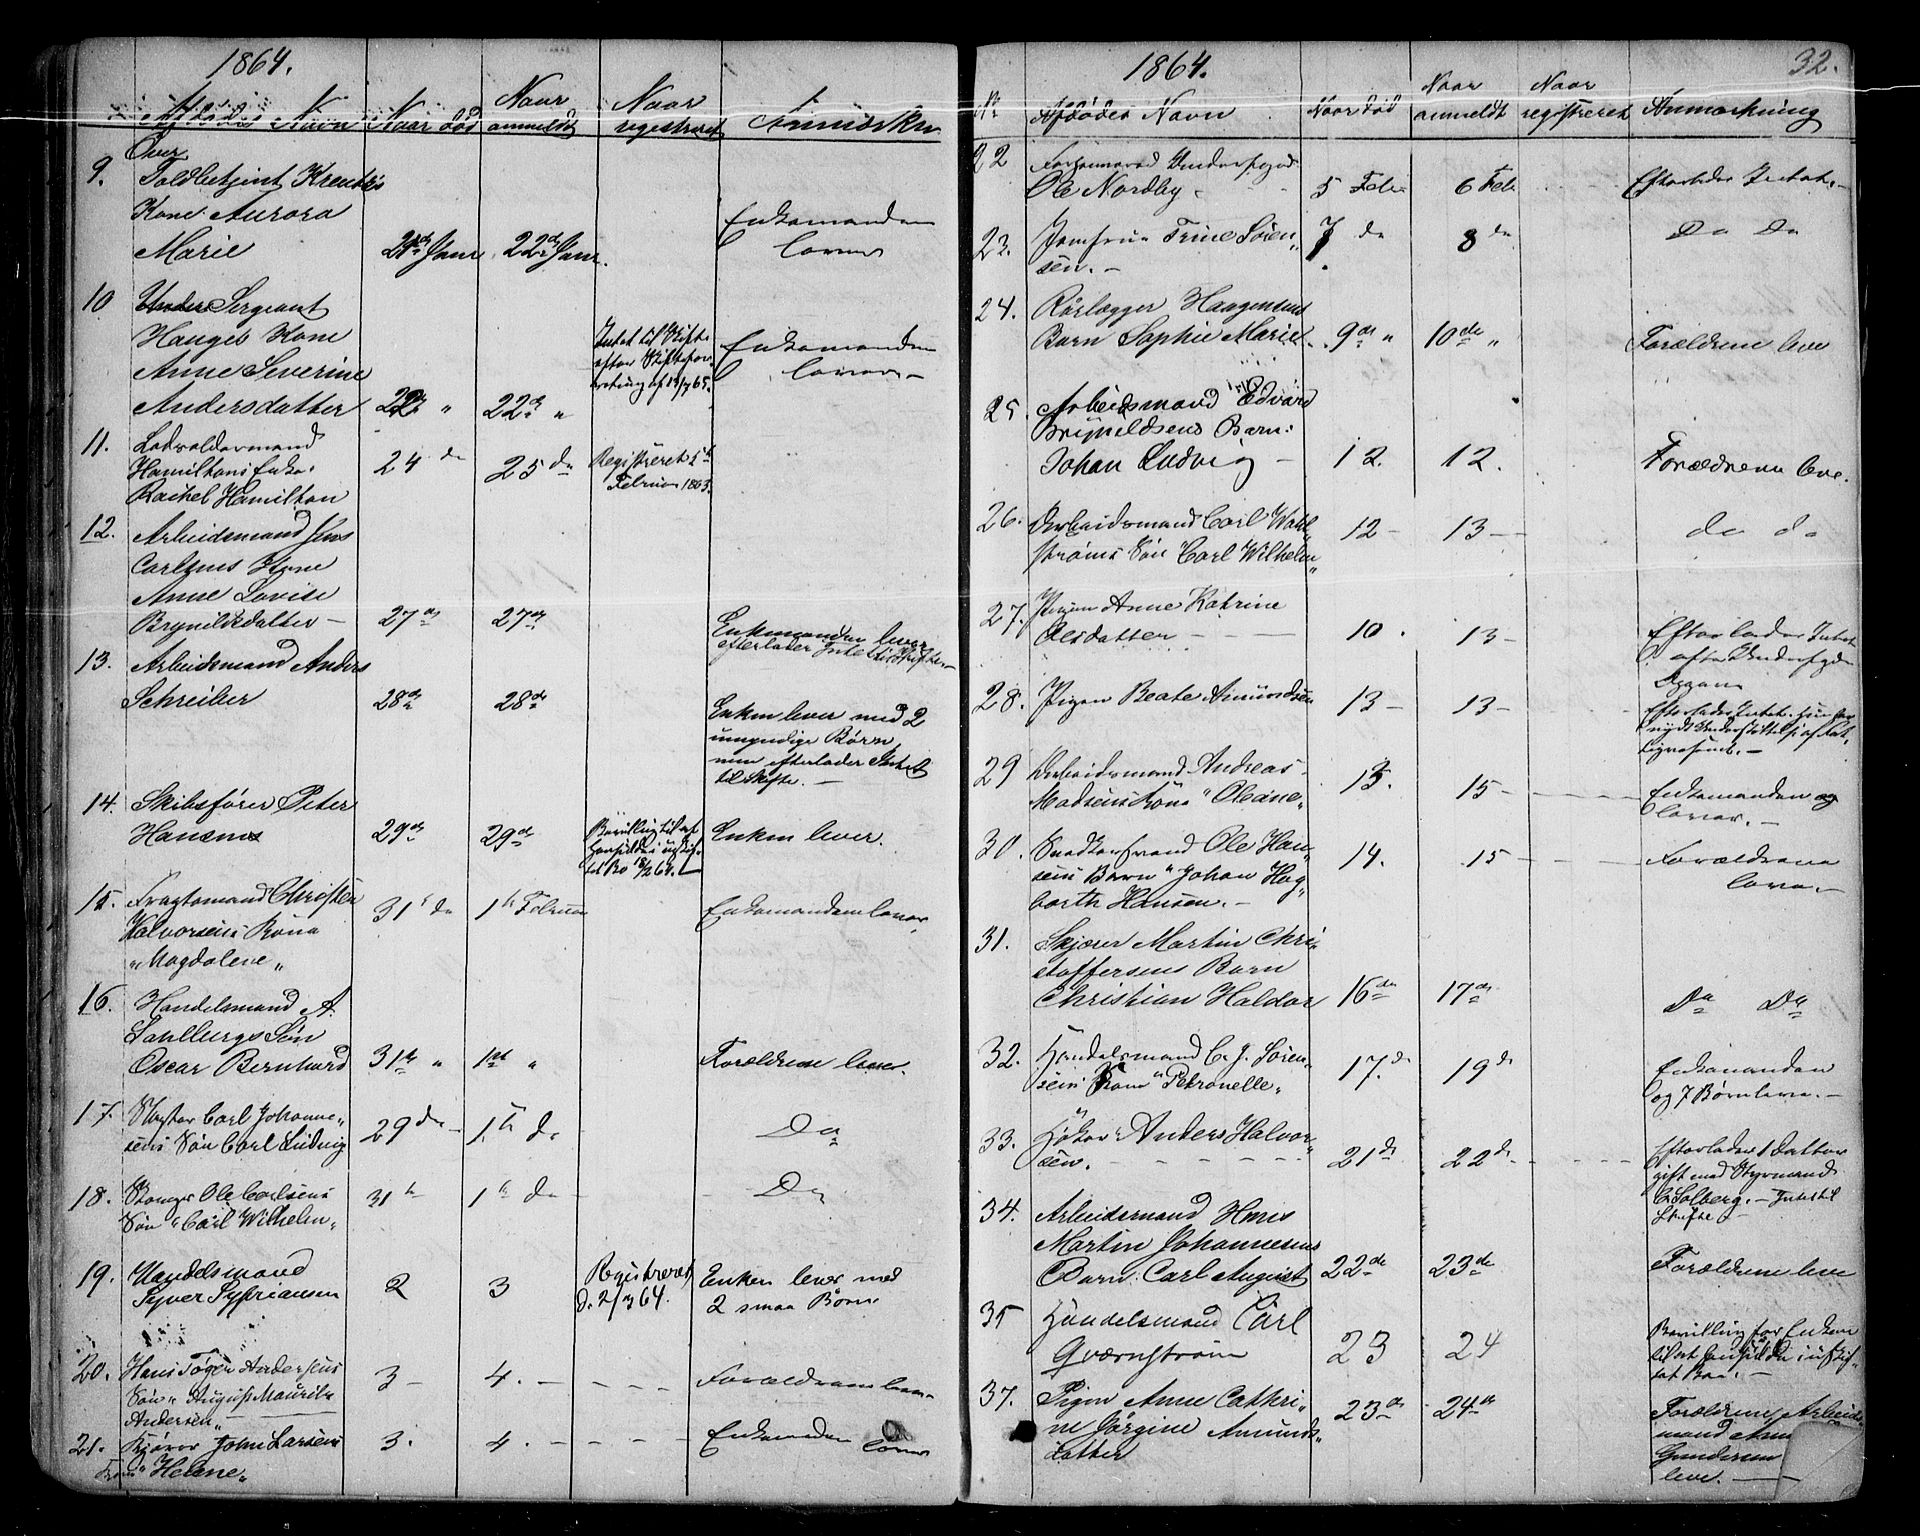 1864.
Afdødes Navn Naar død Naar anmeldt Naar registreret Anmærkn
9. Over
Toldbetjent
Kone Aurora
Marie 21de Janr 22de Janr. Enkemanden
lever
10 Under Sergeant
Hauges Kone
Anne Severine
Andersdatter 22de " 22de " Intet til Skifte
efter Skiftefor-
retning af
Enkemanden
lever –
11. Lodsoldermand
Hamiltons Enke
Rachel Hamilton 24 de 25 de Registreret
Februar 1865.
12. Arbeidsmand Jens
Carlsens Kone
Anne Lovise
Brynildsdatter – 27de 27de Enkemanden lever
efterlader Intet til Skifte –
13. Arbeidsmand Anders
Schreiber 28de 28de Enken lever med 2
umyndige Børn
men efterlader Intet
til Skifte. –
14. Skibsfører Peter
Hansens 29de 29de Bevilling til at
hensidde i uskif-
tet Bo 18/2 64. Enken lever.
15. Fragtemand Christen
Halvorsens Kone
"Magdalene" 31te de 1ste Februar Enkemanden lever
16. Handelsmand A.
Sahlbergs Søn
Oscar Bernhard 31te " 1ste " Forældrene lever.
17. Slagter Carl Johanne-
sens Søn Carl Ludvig 29 de – 1ste de Do
18. Ole Carlsens
Søn "Carl Wilhelm" 31te 1ste de Do
19. Handelsmand
Syver Sypriansen 2 3 Registreret
d. 2/3 64. Enken lever med
2 smaa Børn
20. Hans Tøger Andersens
Søn "August Mauritz
Andersen" 3 – 4. – Forældrene lever
21. John Larsens
Kone "Helene" 3. 4. – Enkemanden
lever
1864. 32.
No Afdødes Navn Naar død Naar anmeldt Naar registreret Anmærkning
22
Ole Nordby – 5 Feb 6 Feb Efterlader Intet. –
23. Jomfrue Trine Søren-
sen. – 7 de 8 de Do Do
24. Rørlægger Haagensens
Barn Sophie Marie 9de " 10de " Forældrene leve
25. Arbeidsmand Edvard
Brynildsens Barn:
Johan Ludvig – 12. 12. Forældrene leve.
26. Arbeidsmand Carl Wahl-
strøms Søn Carl Wilhelm" 12 – 13 – do do
27. Pigen Anne Katrine
Olsdatter – 10. 13 – Efterlader Intet
28. Pigen Beate Amundsen 13 – 13 – Efterlader Intet. Hun har
nydt Understøttelse af Fat-
29 Arbeidsmand Andreas
Madsens Kone "Oleane" 13. 15 – Enkemanden
lever. –
30. Ole Han-
sens Barn "Johan Hag-
barth Hansen. – 14. 15 – Forældrene
leve. –
31. Skjærer Martin Chri-
stoffersens Barn
Christian Haldor 16de 17de Do Do
32. Handelsmand C. J. Søren-
sens Kone "Petronelle" 17. de 19 de Enkemanden
og 7 Børn leve. –
33. Høker Anders Halvor-
sen. – 21 de 22 de Efterlader 1 Datter
gift med Styrmand
C. Solberg. – Intet til
Skifte. –
34. Arbeidsmand Hans
Martin Johannesens
Barn: Carl August 22de 23de Forældrene leve
35 Handelsmand Carl
Qværnstrøm 23 24 Bevilling for Enken
til at hensidde i uskif-
tet Boe. –
37. Pigen Anne Cathri-
ne Jørgine Amunds-
datter 23de 24de Forældrene Arbeids-
mand
Gundersen
leve. –